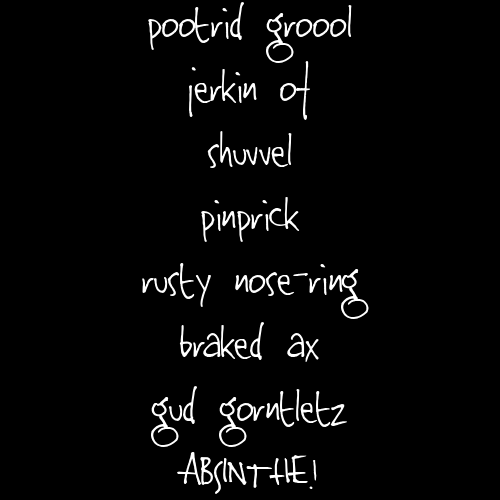 pootrid groool
jerkin of
shuvvel
pinprick
rusty nose-ring
braked ax
gud gorntletz
ABSINTHE!